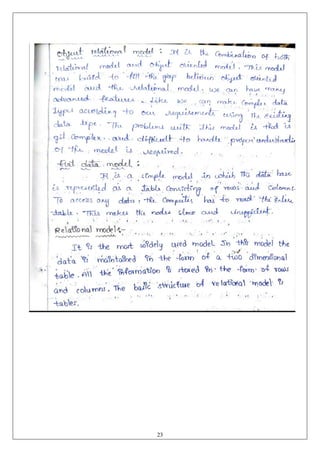 object relational model : It is the combination of both
relational model and object oriented model. This model
was build to fill the gap between object oriented
model and the relational model. we can have many
advanced features. like we can make complex data
types according to our requirements using the existing
data type. The problem with this model is that is
get complex and difficult to handle proper understanding
of the model is required.
flat data model :
It is a simple model in which the data base
is represented as a table consisting of rows and columns
To access any data, the computer has to read the entire
table. This makes the modes slow and inefficient.
Relational model:-
It is the most widely used model. In this model the
data is maintained in the form of a two dimensional
table. All the information is stored in the form of rows
and columns. The basic structure of relational model is
tables.
23